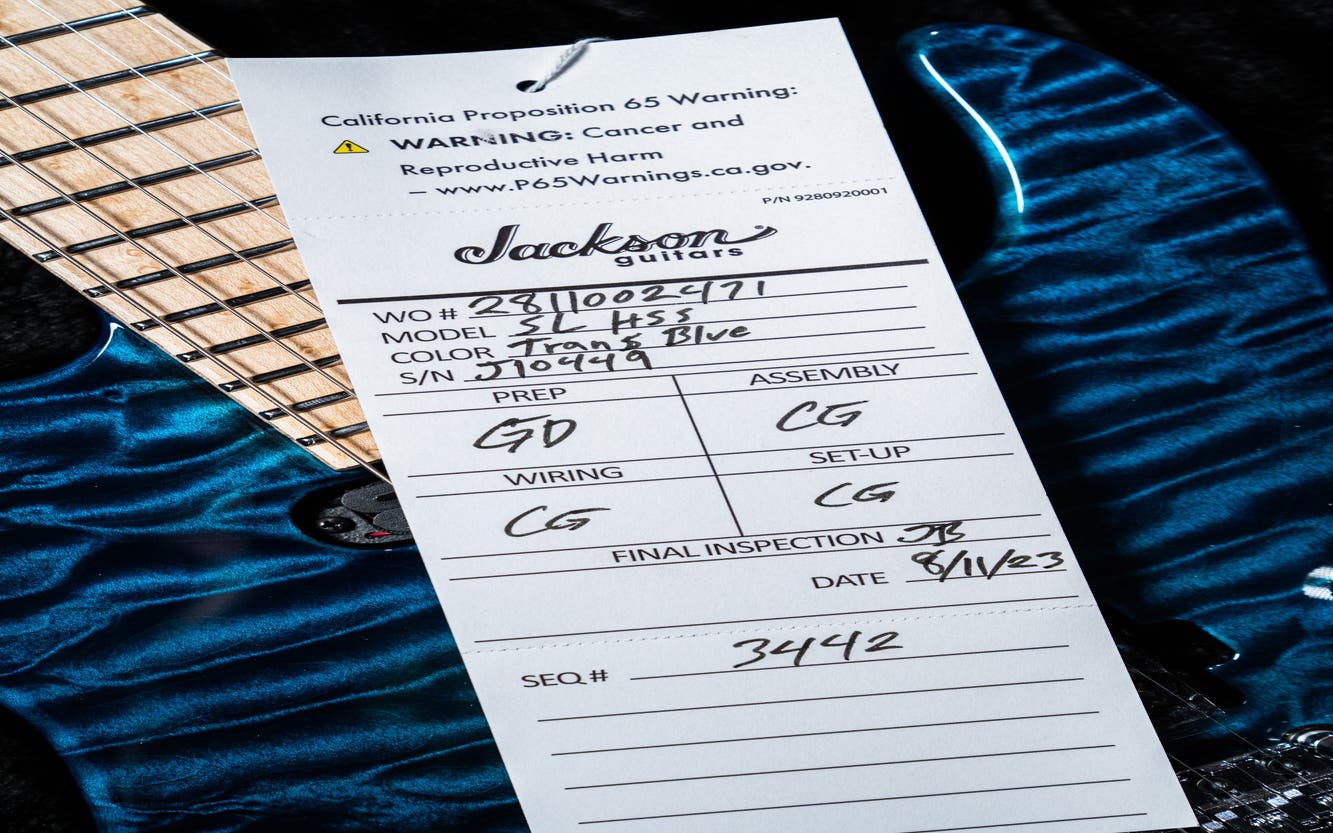 California Proposition 65 Warning:
WARNING: Cancer and
Reproductive Harm
– www.P65Warnings.ca.gov.
P/N 9280920001
Jackson
guitars
WO # 2811002471
MODEL SL HSS
COLOR Trans Blue
S/N J10449
PREP ASSEMBLY
GD CG
WIRING SET-UP
CG CG
FINAL INSPECTION JB
DATE 8/11/23
SEQ # 3442